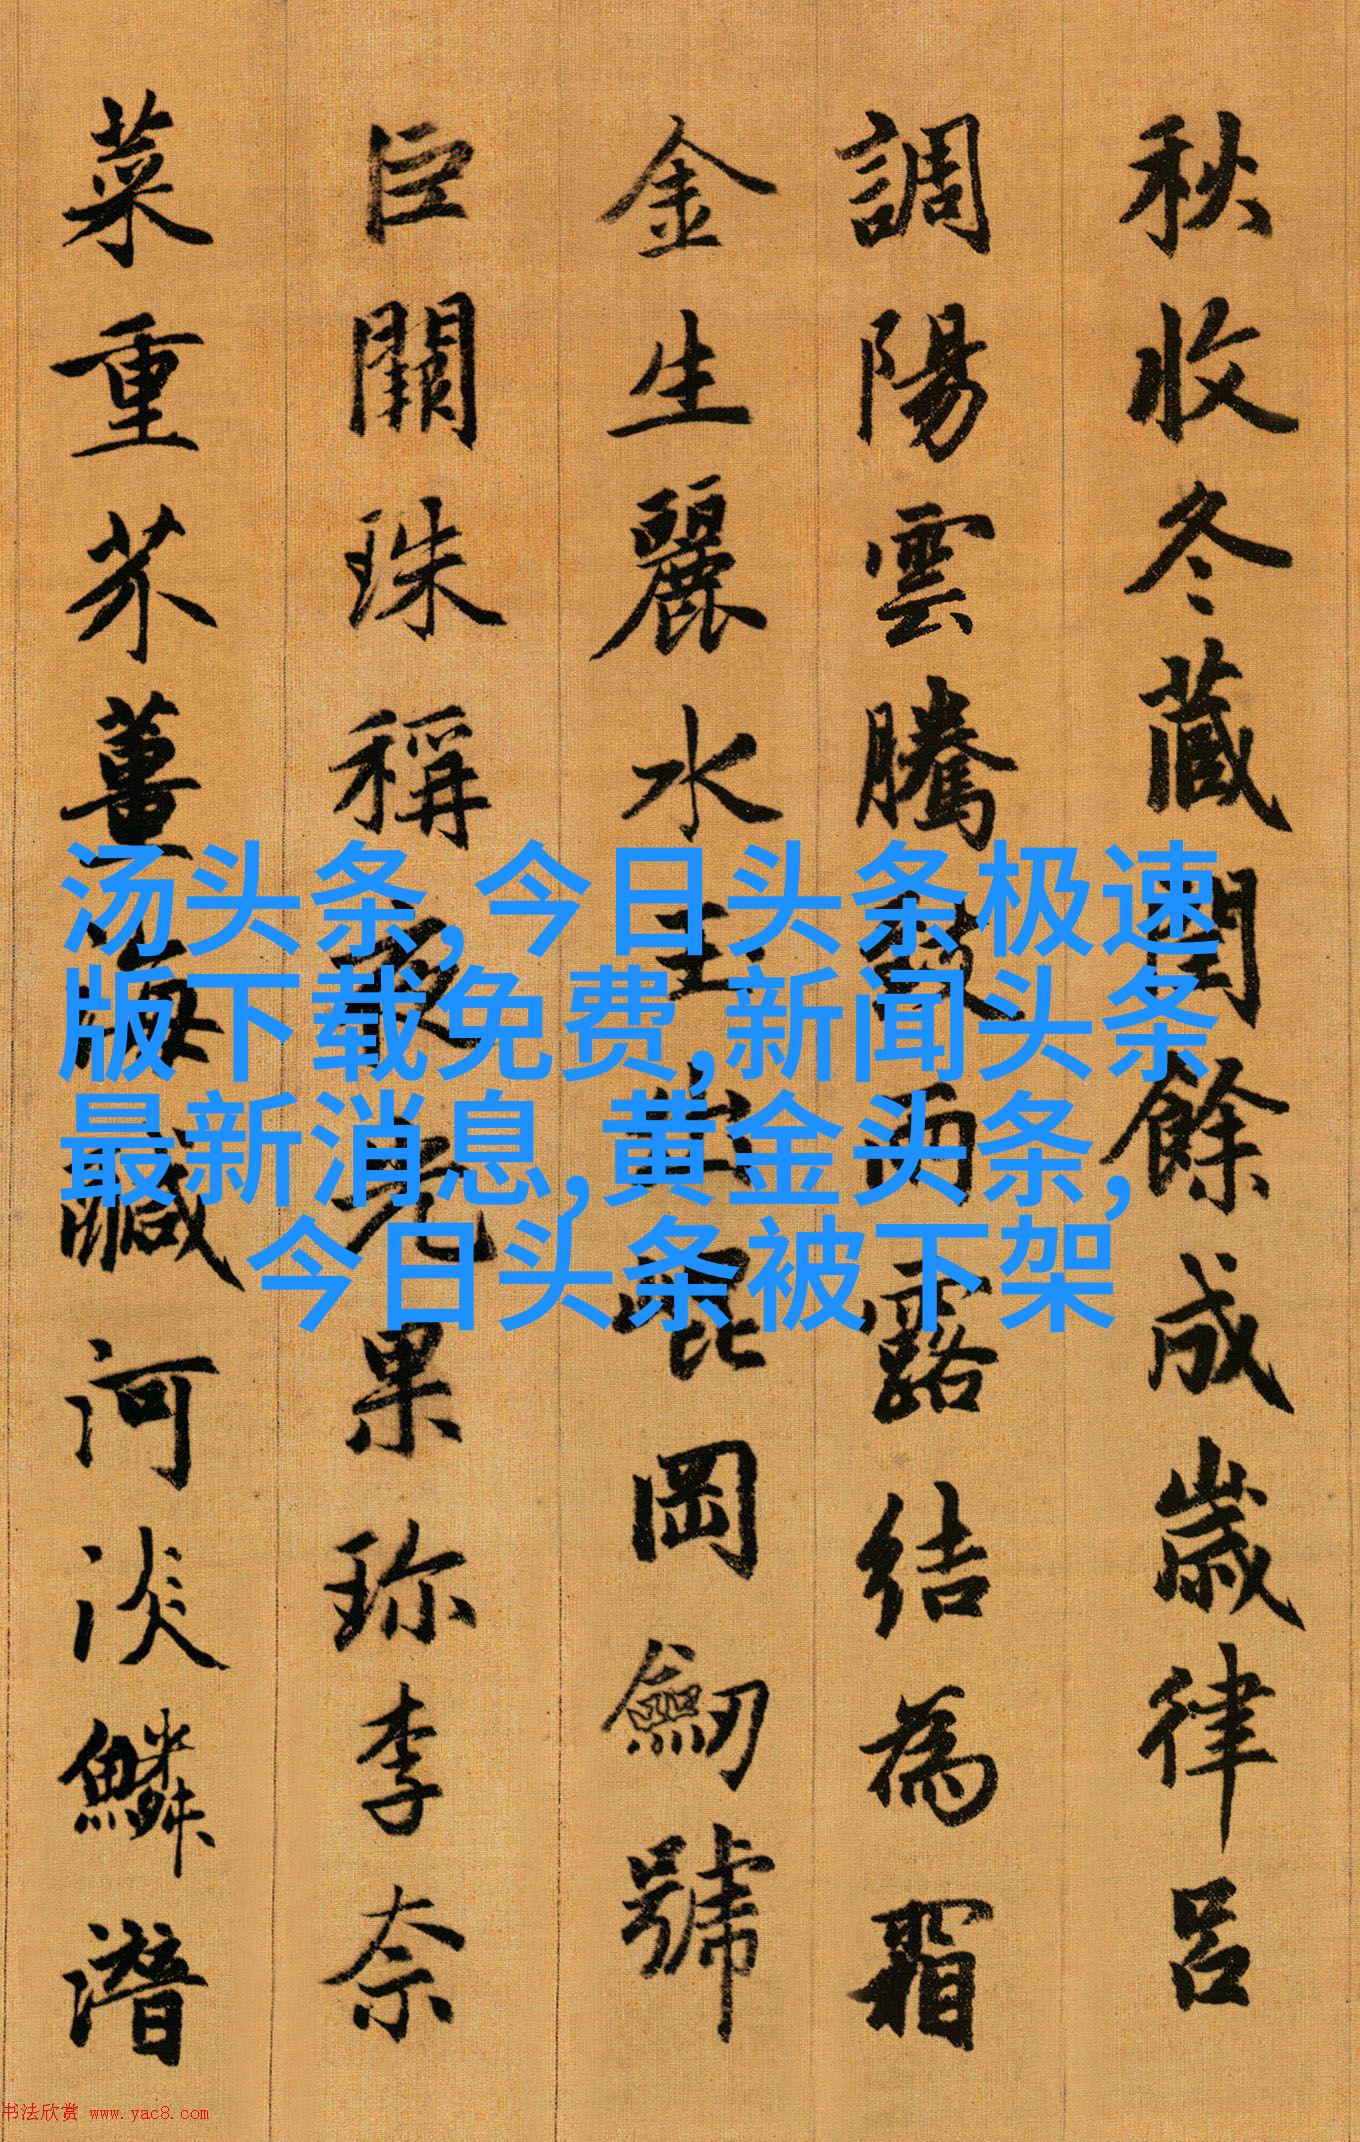 秋收冬藏閏餘成歲律呂
調陽雲騰致雨露結為霜
金生麗水玉出崑岡劔號
巨闕珠稱夜光果珍李奈
菜重芥薑海鹹河淡鱗潛
汤头条,今日头条极速
版下载免费,新闻头条
最新消息,黄金头条,
今日头条被下架
书法欣赏 www.yac8.com